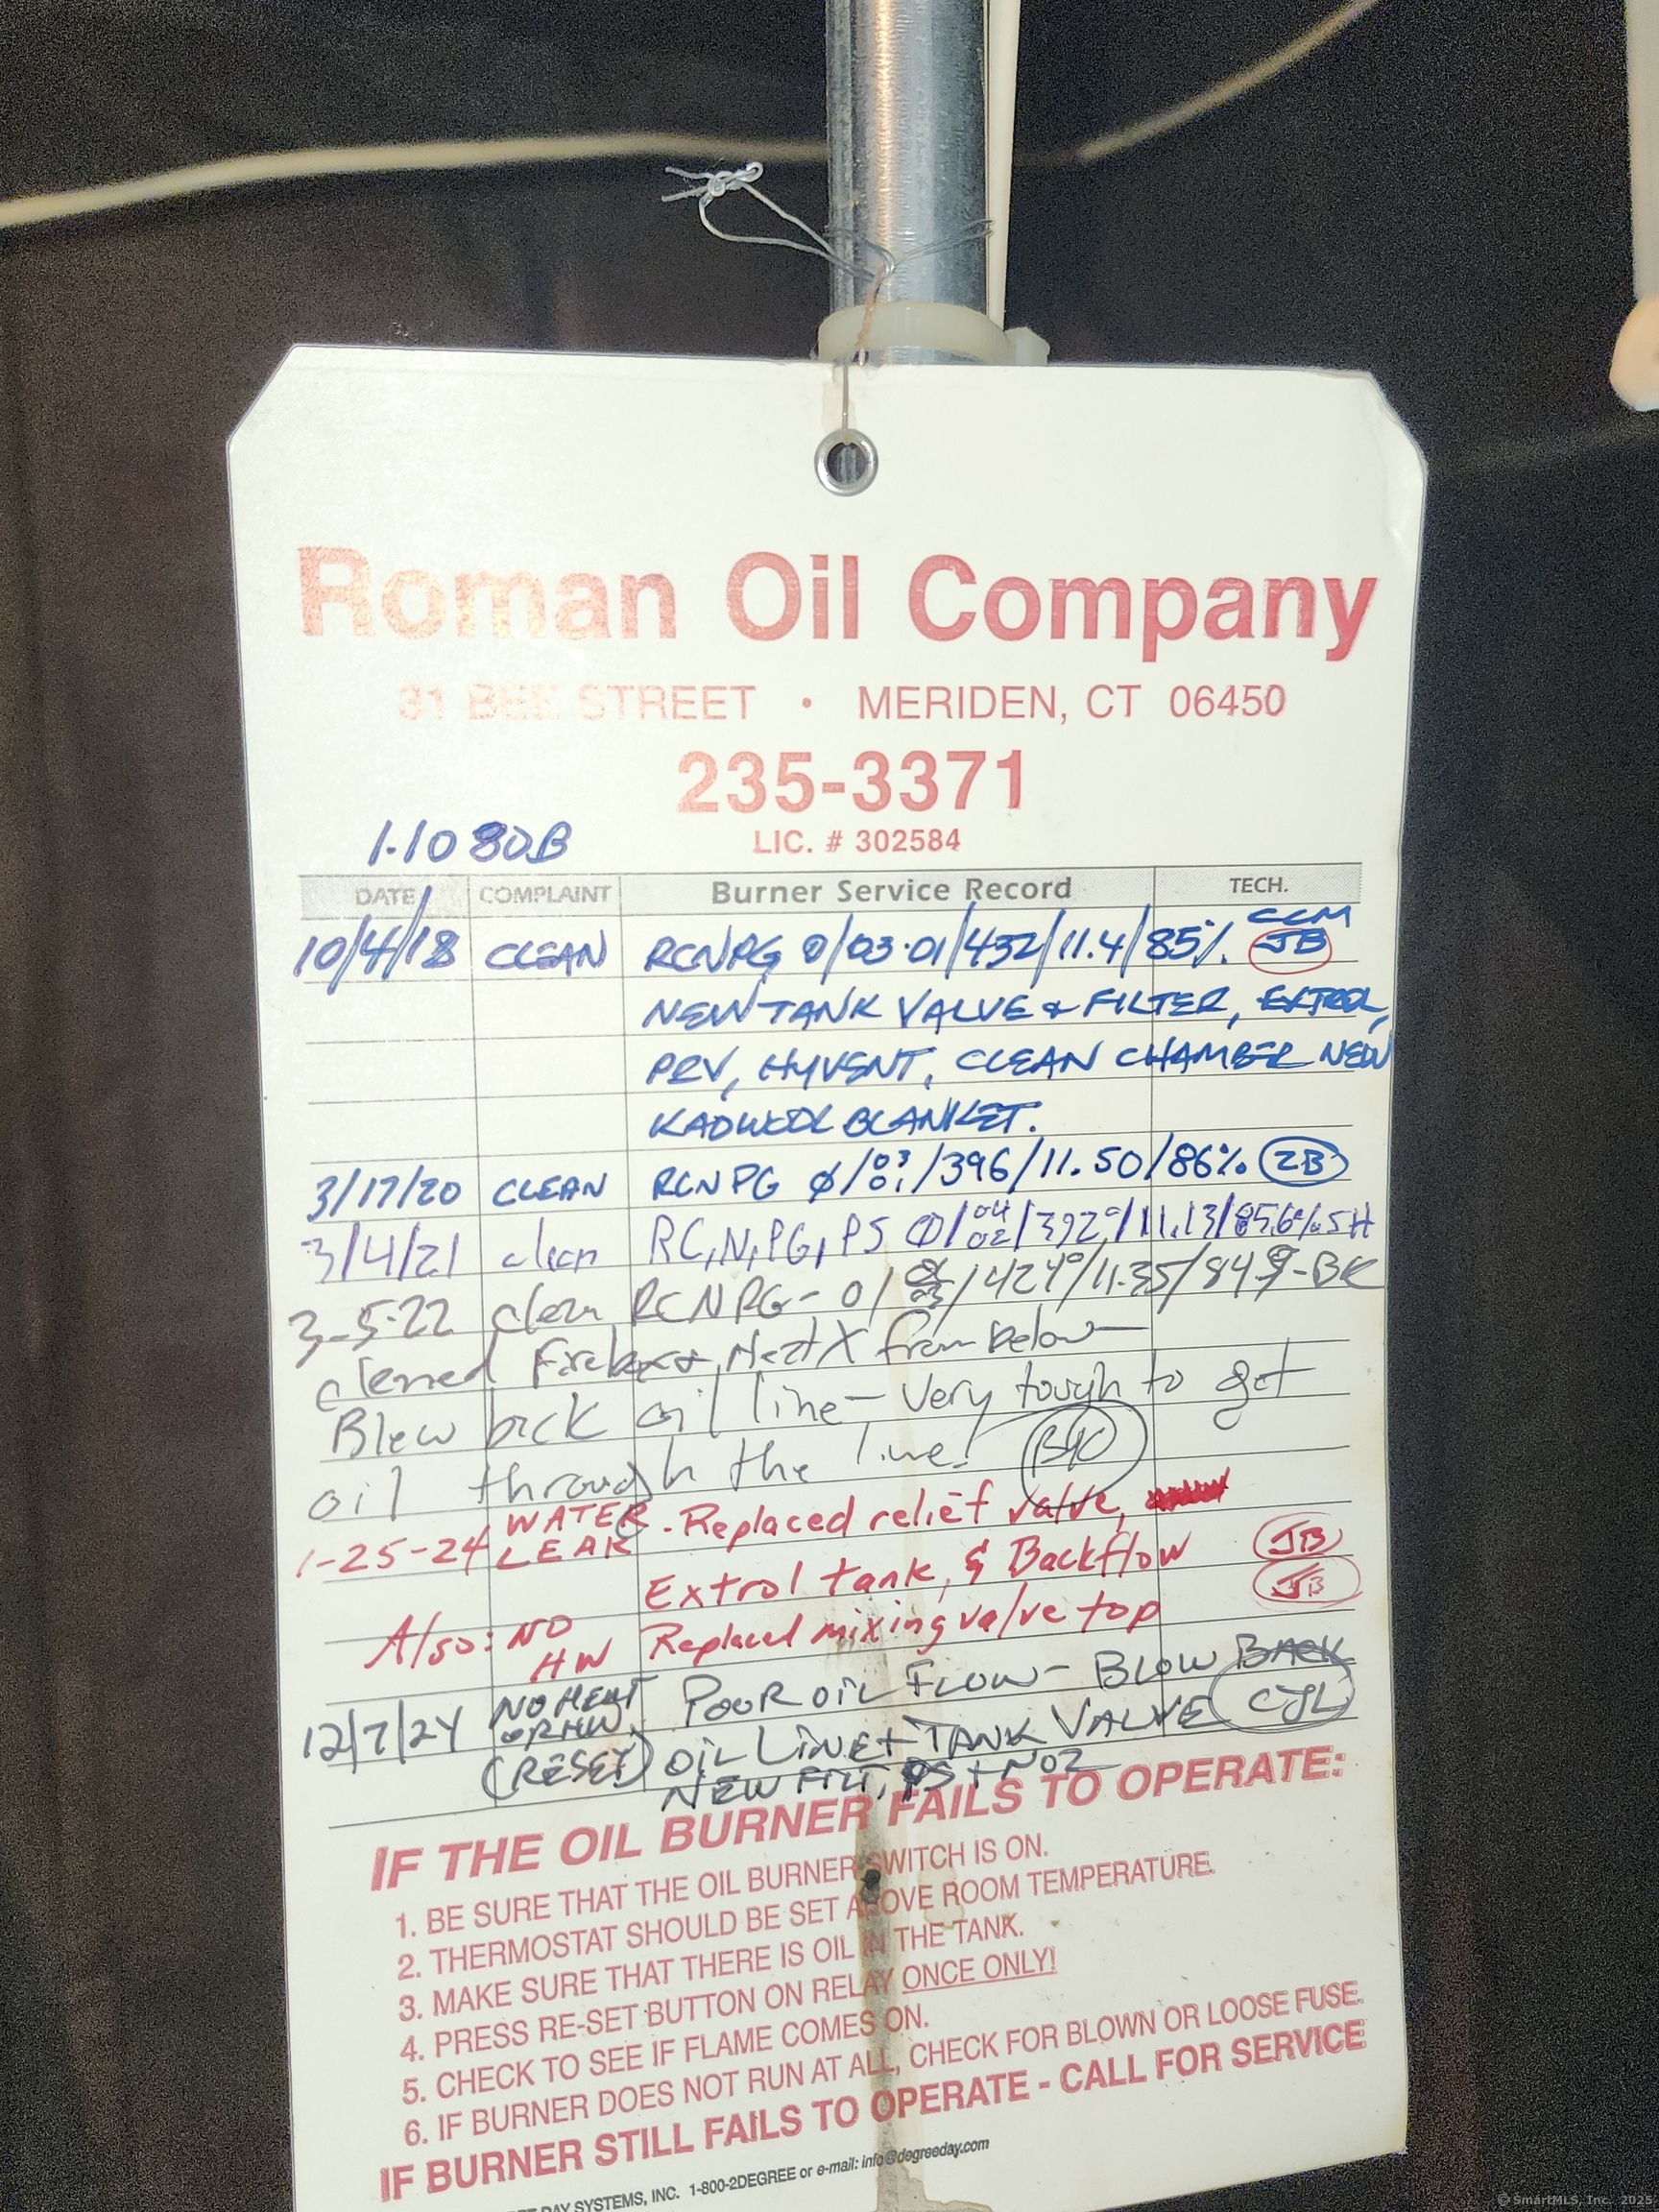 Roman Oil Company
31 BEE STREET • MERIDEN, CT 06450
235-3371
LIC. # 302584
1.10 80B
DATE COMPLAINT Burner Service Record TECH.
10/4/18 CLEAN RCNPG 0/03.01/432/11.4/85% CCM JB
NEW TANK VALVE & FILTER, EXTROL,
PRV, HYVENT, CLEAN CHAMBER NEW
KAOWOOL BLANKET.
3/17/20 CLEAN RCNPG Ø/ /396/11.50/86%
3/4/21 clean RC,N,PG,PS 0/04 02/392°/11.13/85.6% SH
3-5-22 clean RCNPG- 0/ /424°/11.35/84.9-BK
cleaned Firebox & Heat X from below—
Blew back oil line— Very tough to get
oil through the line! BK
1-25-24 WATER LEAK - Replaced relief valve,
Extrol tank, & Backflow JB
Also: NO HW Replaced mixing valve top JB
12/7/24 NO HEAT OR HW (RESET) POOR OIL FLOW- BLOW BACK
OIL LINE + TANK VALVE CJL
NEW FILT, PS + NOZ
IF THE OIL BURNER FAILS TO OPERATE:
1. BE SURE THAT THE OIL BURNER SWITCH IS ON.
2. THERMOSTAT SHOULD BE SET ABOVE ROOM TEMPERATURE.
3. MAKE SURE THAT THERE IS OIL IN THE TANK.
4. PRESS RE-SET BUTTON ON RELAY ONCE ONLY!
5. CHECK TO SEE IF FLAME COMES ON.
6. IF BURNER DOES NOT RUN AT ALL, CHECK FOR BLOWN OR LOOSE FUSE.
IF BURNER STILL FAILS TO OPERATE - CALL FOR SERVICE
DAY SYSTEMS, INC. 1-800-2DEGREE or e-mail: info@degreeday.com
© SmartMLS, Inc. 2025